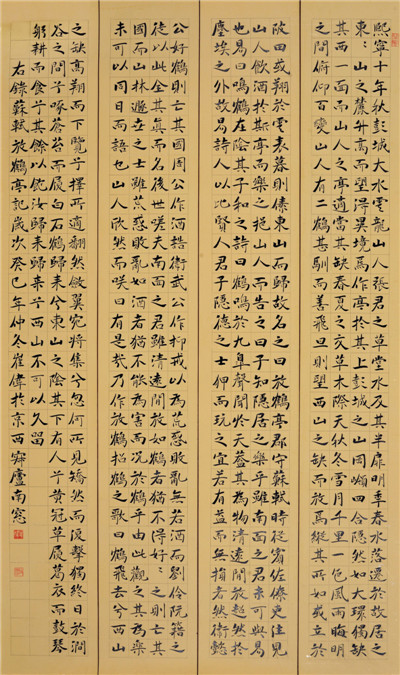 熙寧十年秋彭城大水雲龍山人張君之草堂水及其半扉明年春水落遷於故居之
東〻山之麓升高而望得異境焉作亭於其上彭城之山岡嶺四合隱然如大環獨缺
其西一面而山人之亭適當其缺春夏之交草木際天秋冬雪月千里一色風雨晦明
之間俯仰百變山人有二鶴甚馴而善飛旦則望西山之缺而放焉縱其所如或立於
陂田或翔於雲表暮則傃東山而歸故名之曰放鶴亭郡守蘇軾時從賓佐僚吏往見
山人飲酒於斯亭而樂之挹山人而告之曰子知隱居之樂乎雖南面之君未可與易
也易曰鳴鶴在陰其子和之詩曰鶴鳴於九皋聲聞於天蓋其為物清遠閒放超然於
塵埃之外故易詩人以比賢人君子隱德之士狎而玩之宜若有益而無損者然衛懿
公好鶴則亡其國周公作酒誥衛武公作抑戒以為荒惑敗亂無若酒而劉伶阮籍之
徒以此全其真而名後世嗟夫南面之君雖清遠閒放如鶴者猶不得好〻之則亡其
國而山林遯世之士雖荒惑敗亂如酒者猶不能為害而況於鶴乎由此觀之其為樂
未可以同日而語也山人欣然而咲曰有是哉乃作放鶴招鶴之歌曰鶴飛去兮西山
之缺高翔而下覽兮擇所適翻然斂翼宛將集兮忽何所見矯然而復擊獨終日於澗
谷之間兮啄蒼苔而履白石鶴歸來兮東山之陰其下有人兮黃冠草屨葛衣而鼓琴
躬耕而食兮其餘以飽汝歸來歸來兮西山不可以久留
右錄蘇軾放鶴亭記歲次癸巳年仲冬崔偉於京西廬南窓